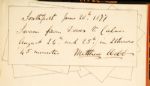 Southport June 20th 1877
Swam from Dover to Calais
August 24th and 25th in 21 hours
45 minutes Matthew Webb